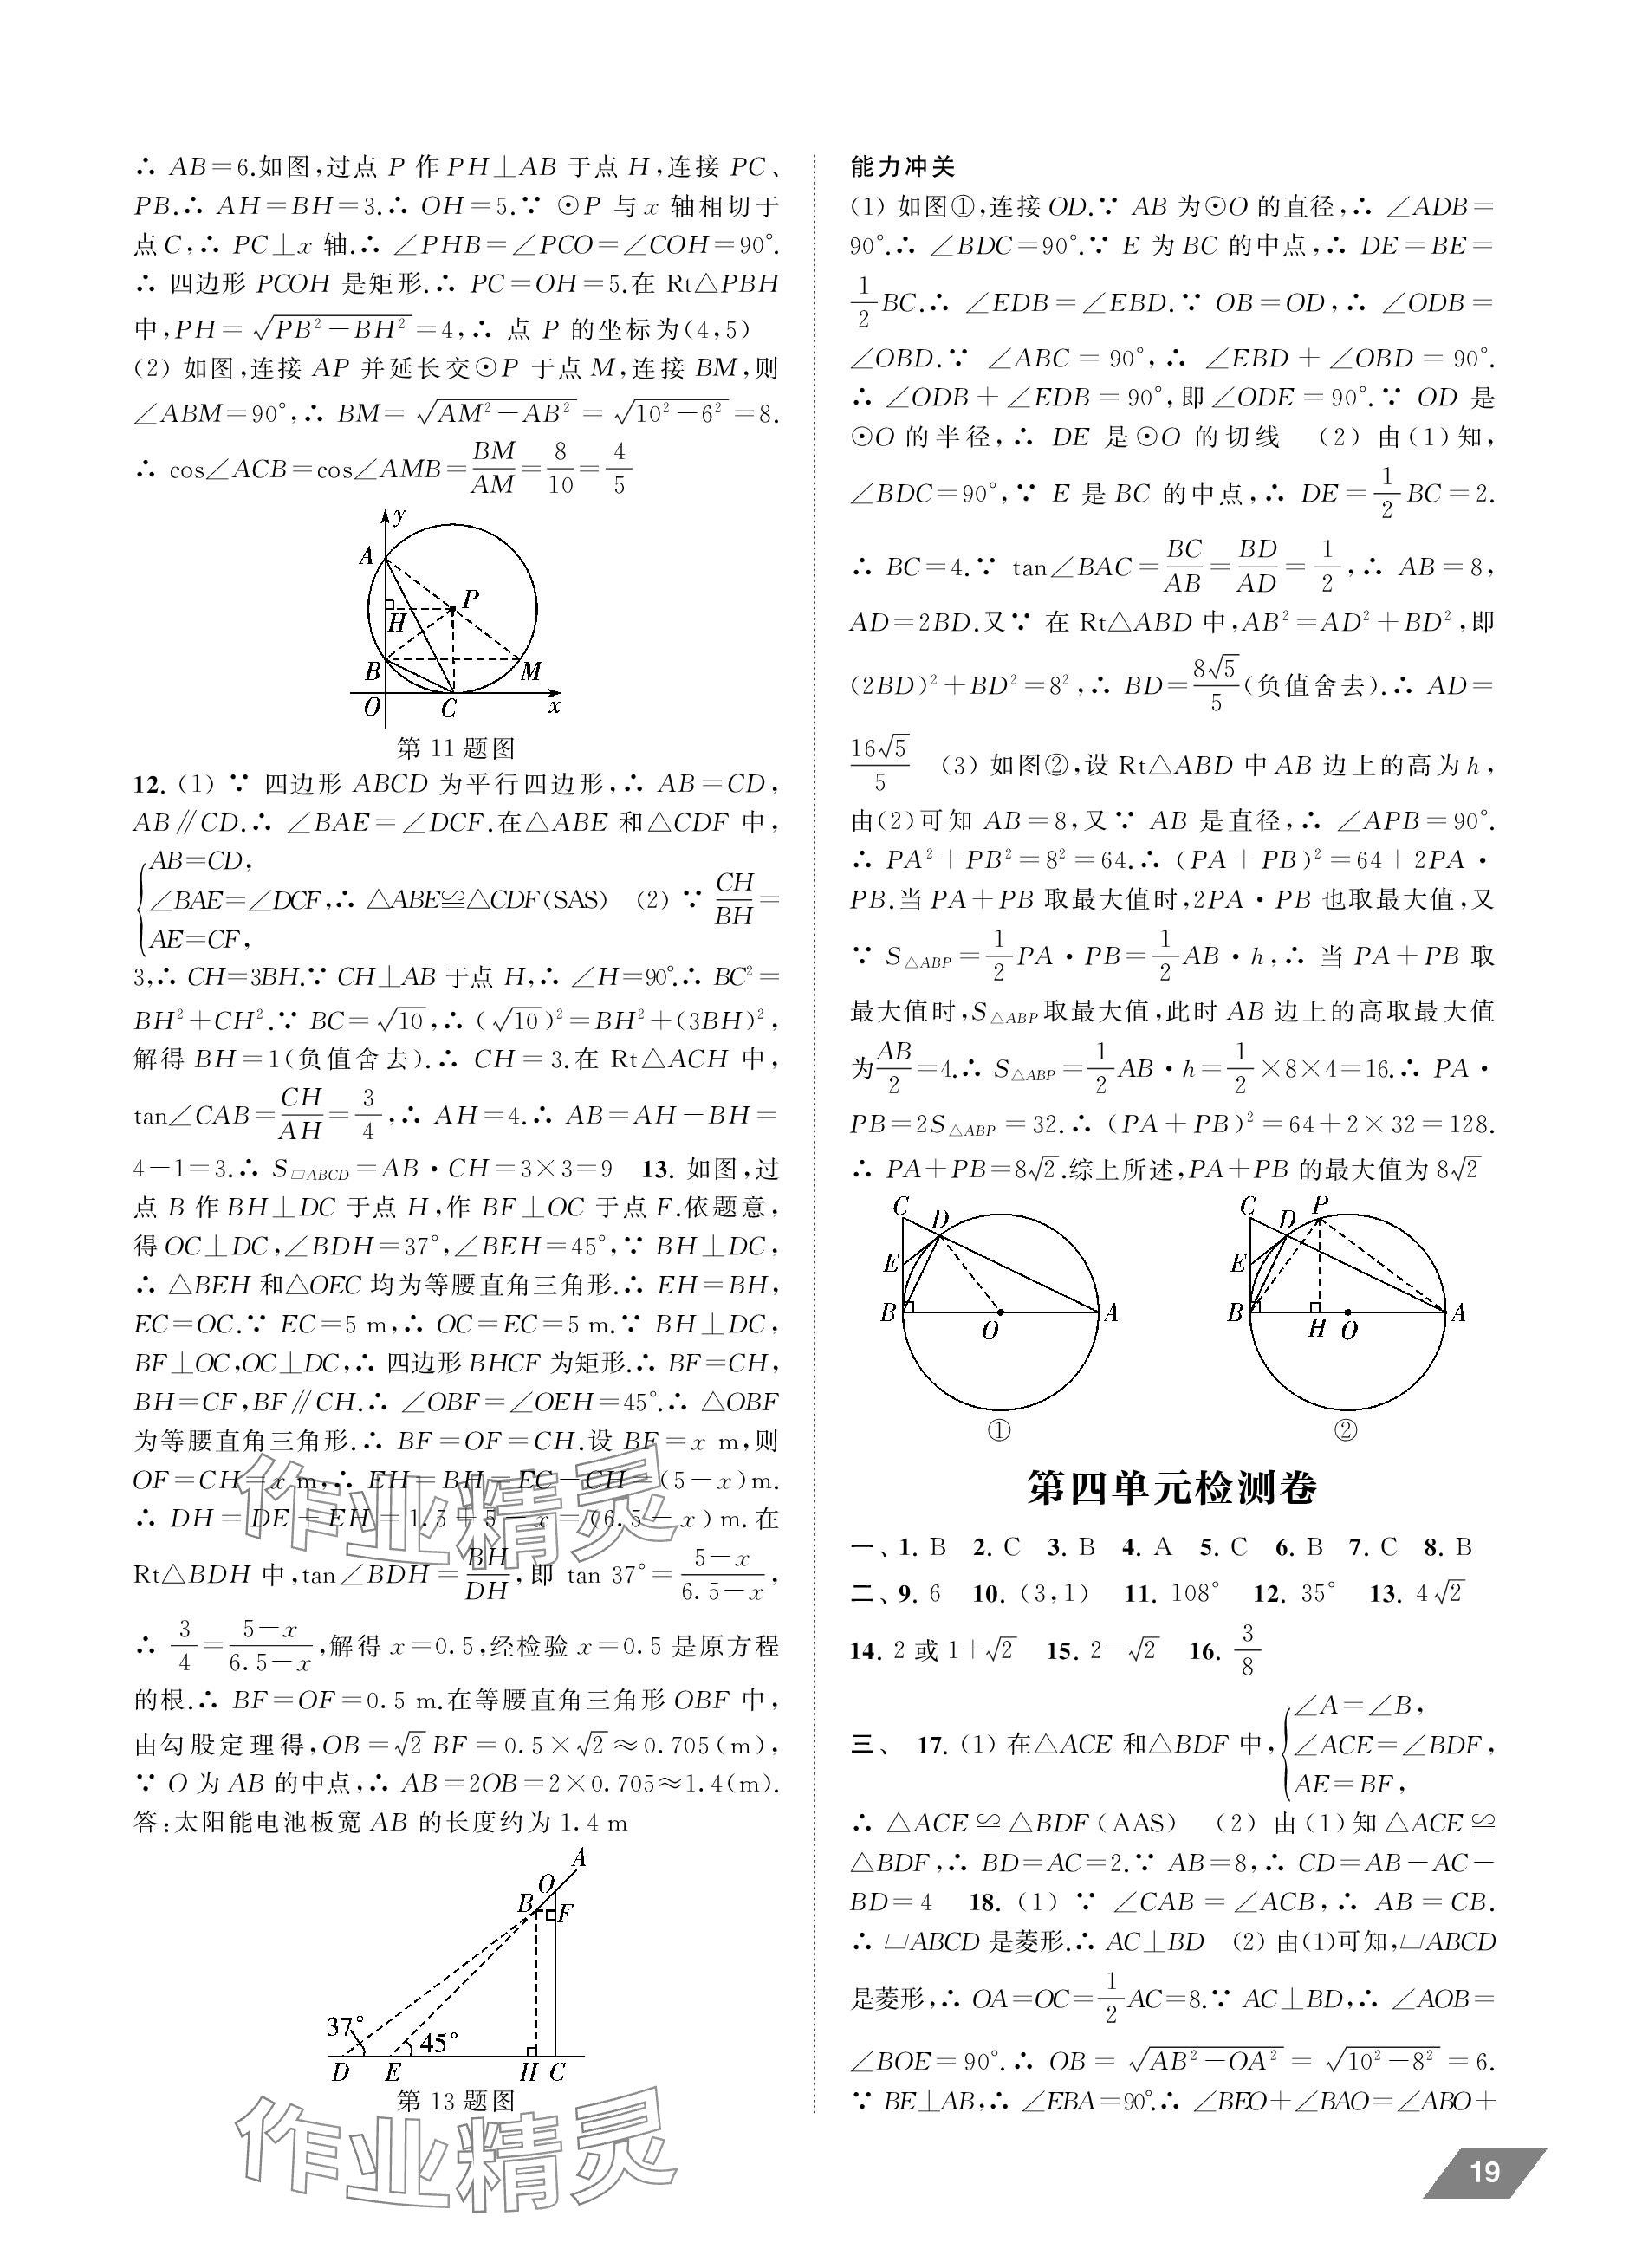 ∴ AB=6.如图,过点 P 作 PH⊥AB 于点 H,连接 PC、
PB.∴ AH=BH=3.∴ OH=5.∵ ⊙P 与 x 轴相切于
点C,∴ PC⊥x 轴.∴ ∠PHB=∠PCO=∠COH=90°.
∴ 四边形 PCOH 是矩形.∴ PC=OH=5.在 Rt△PBH
中,PH=√(PB²-BH²)=4,∴ 点 P 的坐标为(4,5)
(2) 如图,连接 AP 并延长交⊙P 于点 M,连接 BM,则
∠ABM=90°,∴ BM=√(AM²-AB²)=√(10²-6²)=8.
∴ cos∠ACB=cos∠AMB=BM/AM=8/10=4/5
y
A
P
H
B
M
O
C
x
第 11 题图
12. (1) ∵ 四边形 ABCD 为平行四边形,∴ AB=CD,
AB∥CD.∴ ∠BAE=∠DCF.在△ABE 和△CDF 中,
AB=CD,
∠BAE=∠DCF,∴ △ABE≌△CDF(SAS) (2) ∵ CH/BH=
AE=CF,
3,∴ CH=3BH.∵ CH⊥AB 于点 H,∴ ∠H=90°.∴ BC²=
BH²+CH².∵ BC=√10,∴ (√10)²=BH²+(3BH)²,
解得 BH=1(负值舍去).∴ CH=3.在 Rt△ACH 中,
tan∠CAB=CH/AH=3/4,∴ AH=4.∴ AB=AH-BH=
4-1=3.∴ S▱ABCD=AB·CH=3×3=9 13. 如图,过
点 B 作BH⊥DC 于点 H,作 BF⊥OC 于点 F.依题意,
得OC⊥DC,∠BDH=37°,∠BEH=45°,∵ BH⊥DC,
∴ △BEH 和△OEC 均为等腰直角三角形.∴ EH=BH,
EC=OC.∵ EC=5 m,∴ OC=EC=5 m.∵ BH⊥DC,
BF⊥OC,OC⊥DC,∴ 四边形BHCF 为矩形.∴ BF=CH,
BH=CF,BF∥CH.∴ ∠OBF=∠OEH=45°.∴ △OBF
为等腰直角三角形.∴ BF=OF=CH.设 BF=x m,则
OF=CH=x m,∴ EH=BH=EC-CH=(5-x)m.
∴ DH=DE+EH=1.5+5-x=(6.5-x)m.在
Rt△BDH 中,tan∠BDH=BH/DH,即 tan 37°=(5-x)/(6.5-x),
∴ 3/4=(5-x)/(6.5-x),解得 x=0.5,经检验 x=0.5 是原方程
的根.∴ BF=OF=0.5 m.在等腰直角三角形 OBF 中,
由勾股定理得,OB=√2 BF=0.5×√2≈0.705(m),
∵ O 为 AB 的中点,∴ AB=2OB=2×0.705≈1.4(m).
答:太阳能电池板宽 AB 的长度约为 1.4 m
A
O
B
F
37°
45°
D
E
H
C
第 13 题图
作业精灵
作业精灵
能力冲关
(1) 如图①,连接OD.∵ AB 为⊙O 的直径,∴ ∠ADB=
90°.∴ ∠BDC=90°.∵ E 为BC 的中点,∴ DE=BE=
1/2BC.∴ ∠EDB=∠EBD.∵ OB=OD,∴ ∠ODB=
∠OBD.∵ ∠ABC=90°,∴ ∠EBD+∠OBD=90°.
∴ ∠ODB+∠EDB=90°,即∠ODE=90°.∵ OD 是
⊙O 的半径,∴ DE 是⊙O 的切线 (2) 由(1)知,
∠BDC=90°,∵ E 是 BC 的中点,∴ DE=1/2BC=2.
∴ BC=4.∵ tan∠BAC=BC/AB=BD/AD=1/2,∴ AB=8,
AD=2BD.又∵ 在 Rt△ABD 中,AB²=AD²+BD²,即
(2BD)²+BD²=8²,∴ BD=8√5/5(负值舍去).∴ AD=
16√5/5 (3) 如图②,设 Rt△ABD 中 AB 边上的高为h,
由(2)可知 AB=8,又∵ AB 是直径,∴ ∠APB=90°.
∴ PA²+PB²=8²=64.∴ (PA+PB)²=64+2PA·
PB.当 PA+PB 取最大值时,2PA·PB 也取最大值,又
∵ S△ABP=1/2PA·PB=1/2AB·h,∴ 当 PA+PB 取
最大值时,S△ABP取最大值,此时 AB 边上的高取最大值
为AB/2=4.∴ S△ABP=1/2AB·h=1/2×8×4=16.∴ PA·
PB=2S△ABP=32.∴ (PA+PB)²=64+2×32=128.
∴ PA+PB=8√2.综上所述,PA+PB 的最大值为 8√2
C
D
E
B
O
A
①
C
D
P
E
B
H
O
A
②
第四单元检测卷
一、1. B 2. C 3. B 4. A 5. C 6. B 7. C 8. B
二、9. 6 10. (3,1) 11. 108° 12. 35° 13. 4√2
14. 2 或 1+√2 15. 2-√2 16. 3/8
∠A=∠B,
三、 17. (1) 在△ACE 和△BDF 中,∠ACE=∠BDF,
AE=BF,
∴ △ACE≌△BDF(AAS) (2) 由(1)知△ACE≌
△BDF,∴ BD=AC=2.∵ AB=8,∴ CD=AB-AC-
BD=4 18. (1) ∵ ∠CAB=∠ACB,∴ AB=CB.
∴ ▱ABCD 是菱形.∴ AC⊥BD (2) 由(1)可知,▱ABCD
是菱形,∴ OA=OC=1/2AC=8.∵ AC⊥BD,∴ ∠AOB=
∠BOE=90°.∴ OB=√(AB²-OA²)=√(10²-8²)=6.
∵ BE⊥AB,∴ ∠EBA=90°.∴ ∠BEO+∠BAO=∠ABO+
19